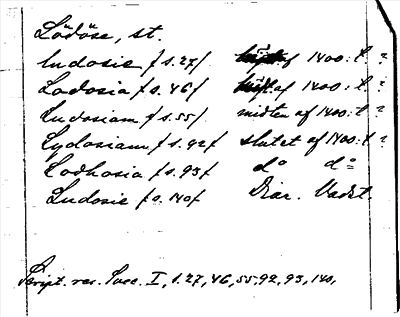 Lödöse, st.
Ludosie /s. 27/ af 1400: t ?
Lodosia /s. 46/ af 1400: t ?
Ludosiam /s. 55/ midten af 1400: t ?
Lydosiam /s. 92/ slutet af 1400: t ?
Lodhosia /s. 93/ do do
Ludosie /s. 140/ Diar. Vadst.
Script. rer. Svec. I, s. 27, 46, 55, 92, 93, 140.